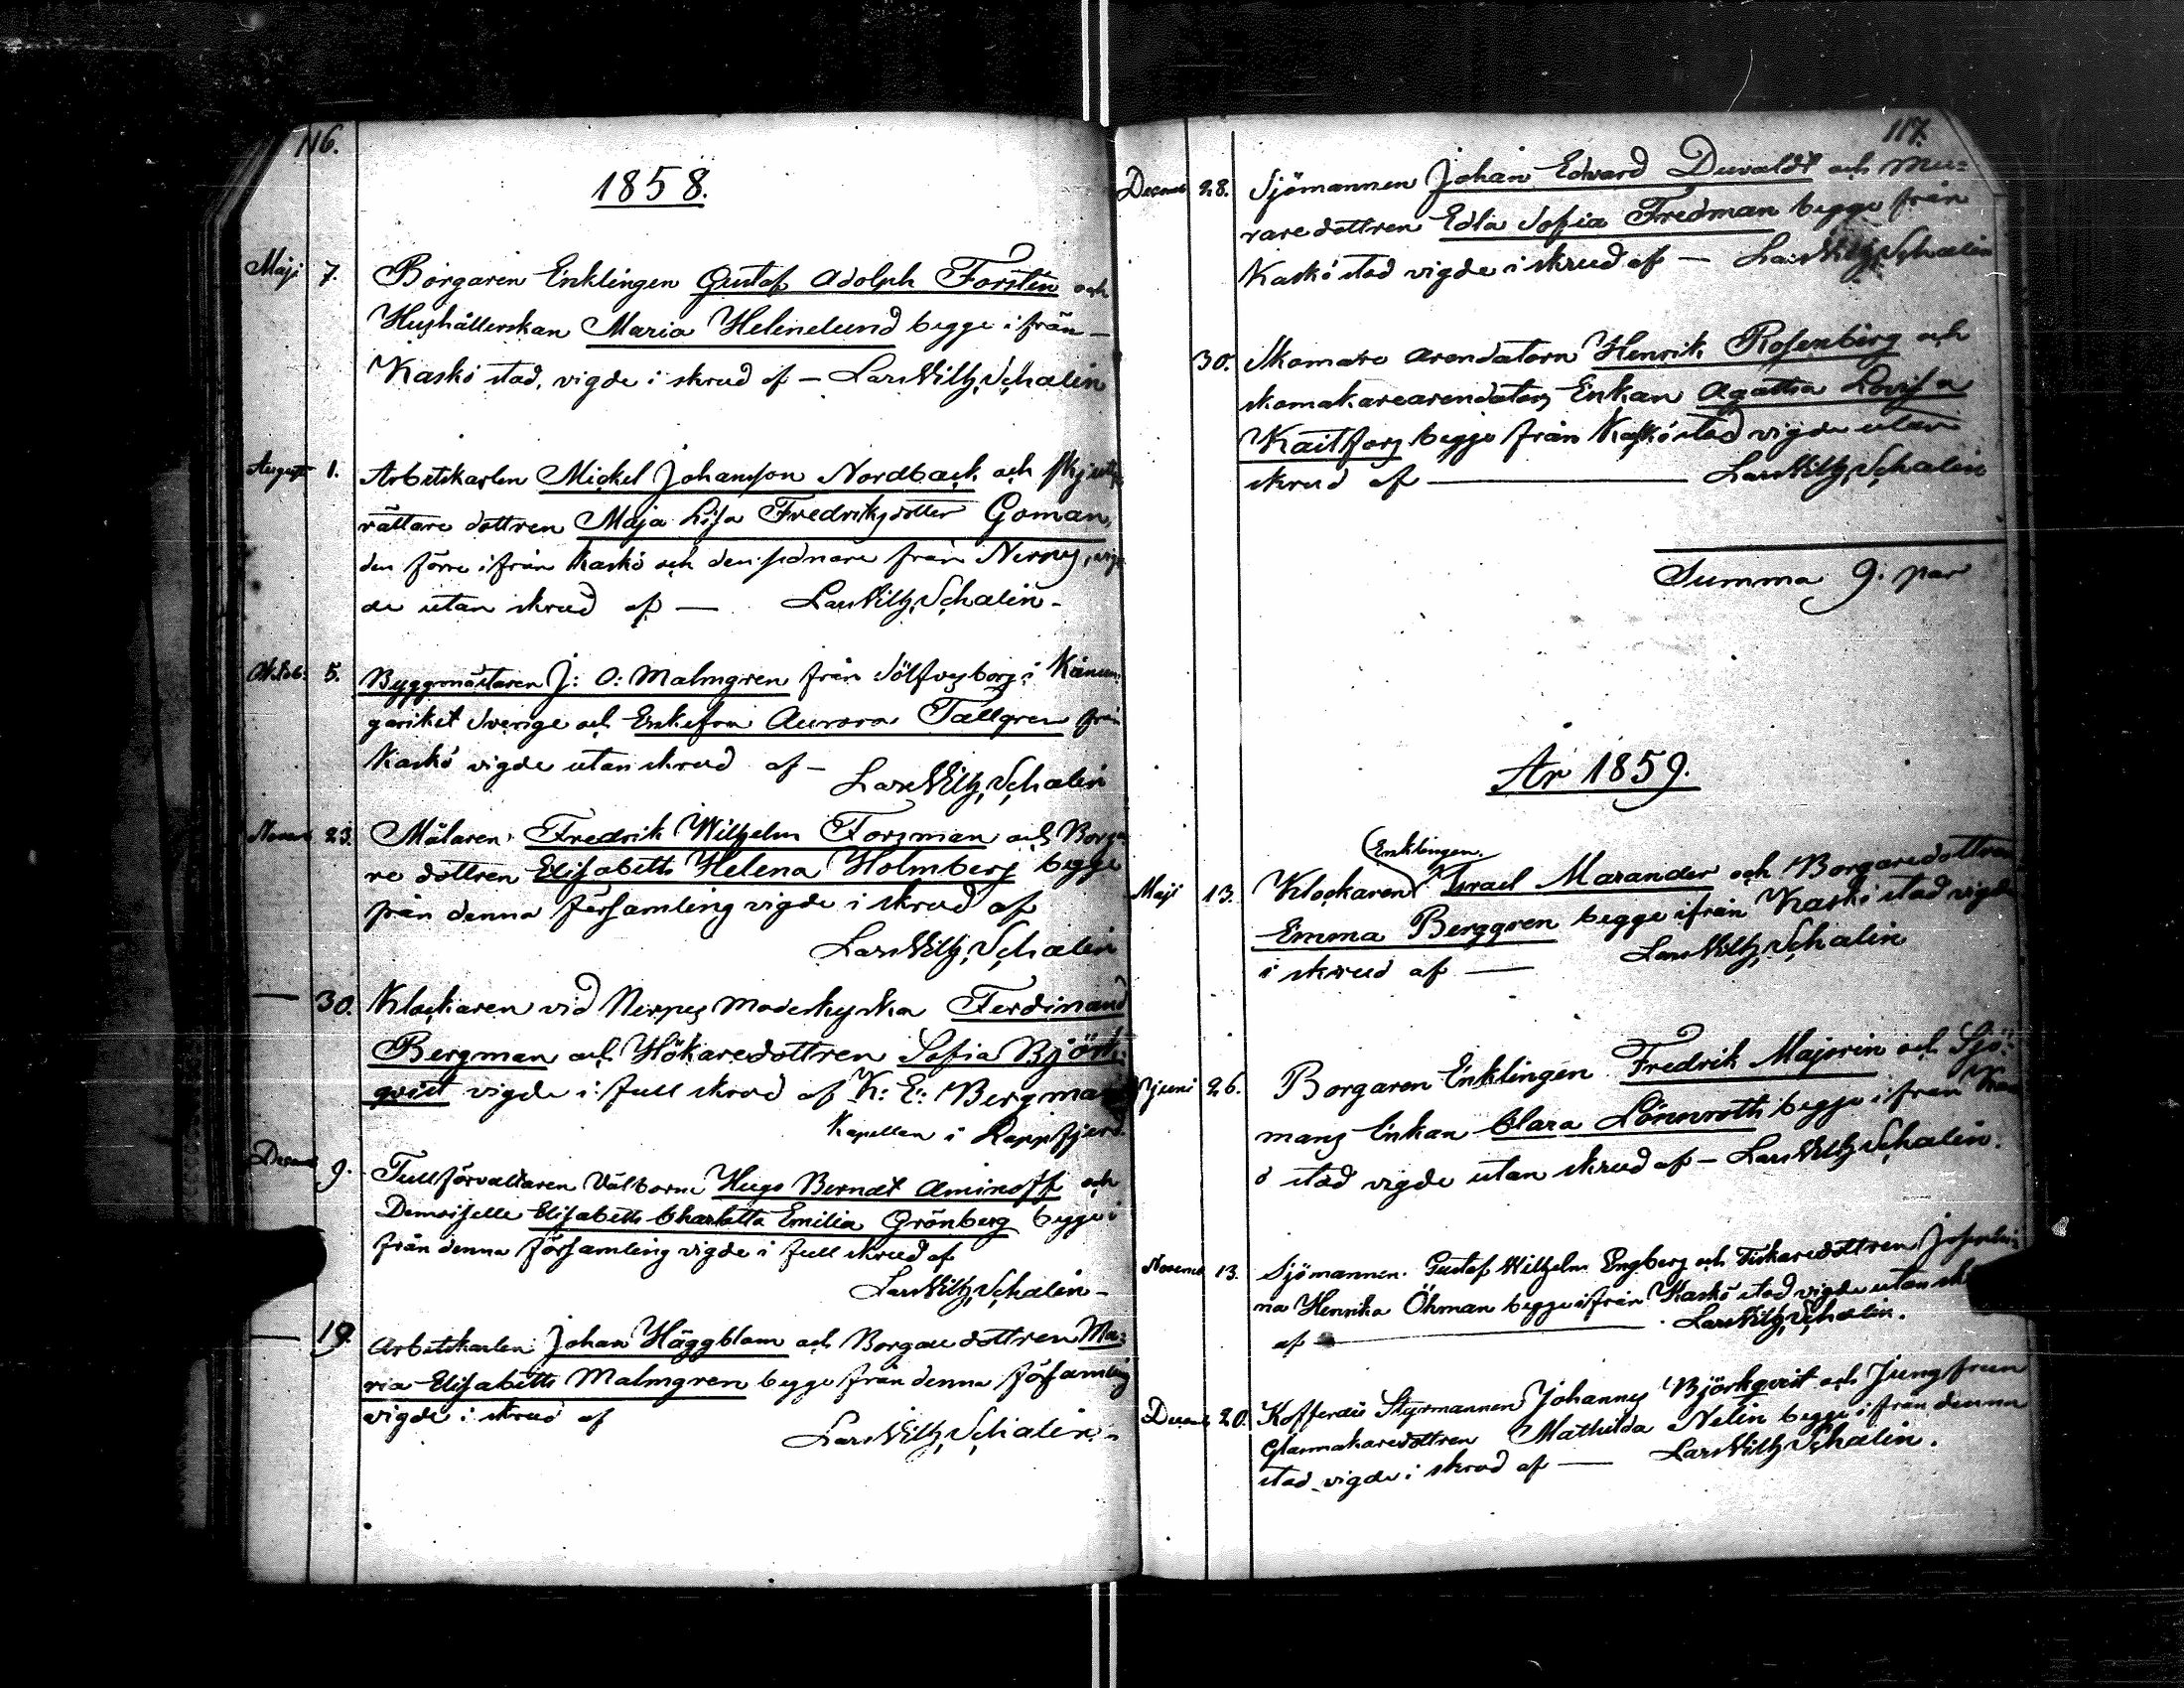 116.
1858.
Maji 7. Borgaren Enklingen Gustaf Adolph Forstén och
Hushållerskan Maria Helenelund begge ifrån
Kaskö stad, vigde i skrud af — Lars Wilh, Schalin
August 1. Arbetskarlen Mickel Johansson Nordback och skjuts-
rättare dottren Maja Lisa Fredriksdotter Goman,
den förre ifrån Kaskö och den sednare från Nerpes, vig-
de utan skrud af — Lars Wilh, Schalin -
Oktob: 5. Byggmästaren J: O: Malmgren från Sölfvesborg i Konun-
gariket Sverige och Enkefru Aurora Tallgren från
Kaskö vigde utan skrud af —
Lars Wilh, Schalin
Novemb 23. Målaren Fredrik Wilhelm Forsman och Borga-
re dottren Elisabeth Helena Holmberg begge
från denna församling vigde i skrud af
Lars Wilh, Schalin
— 30. Klockaren vid Nerpes moderkyrka Ferdinand
Bergman och Hökaredottren Sofia Björk-
qvist vigde i full skrud af K: E: Bergman
Kapellan i Lappfjerd.
Decemb 9. Tullförvaltaren Välborne Hugo Berndt Aminoff och
Demoiselle Elisabeth Charlotta Emilia Grönberg begge i
från denna församling vigde i full skrud af
Lars Wilh, Schalin -
— 19. Arbetskarlen Johan Häggblom och Borgare dottren Ma-
ria Elisabeth Malmgren begge från denna församling
vigde i skrud af
Lars Wilh, Schalin -
117.
Decemb 28. Sjömannen Johan Edvard Duvaldt och Mu-
rare dottren Edla Sofia Fredman begge från
Kaskö stad vigde i skrud af — Lars Wilh, Schalin
30. Skomare arendatorn Henrik Rosenberg och
skomakarearendators Enkan Agatha Lovisa
Kaitfors begge från Kaskö stad vigde utan
skrud af — Lars Wilh, Schalin
Summa 9. par
År 1859.
Enklingen
Maji 13. Klockaren Israel Marander och Borgaredottren
Emma Berggren begge ifrån Kaskö stad vigde
i skrud af — Lars Wilh, Schalin
Juni 26. Borgaren Enklingen Fredrik Majorin och Sjö-
mans Enkan Clara Lönnroth begge ifrån Kask
ö stad vigde utan skrud af — Lars Wilh, Schalin.
Novemb 13. Sjömannen Gustaf Wilhelm Engberg och Fiskaredottren Josephi-
na Henrika Öhman begge ifrån Kaskö stad vigde utan sk
af — Lars Wilh, Schalin.
Decemb 20. Kofferdie Styrmannen Johannes Björkqvist och Jungfrun
Glasmakaredottren Mathilda Nelin begge ifrån denna
stad vigde i skrud af — Lars Wilh Schalin.